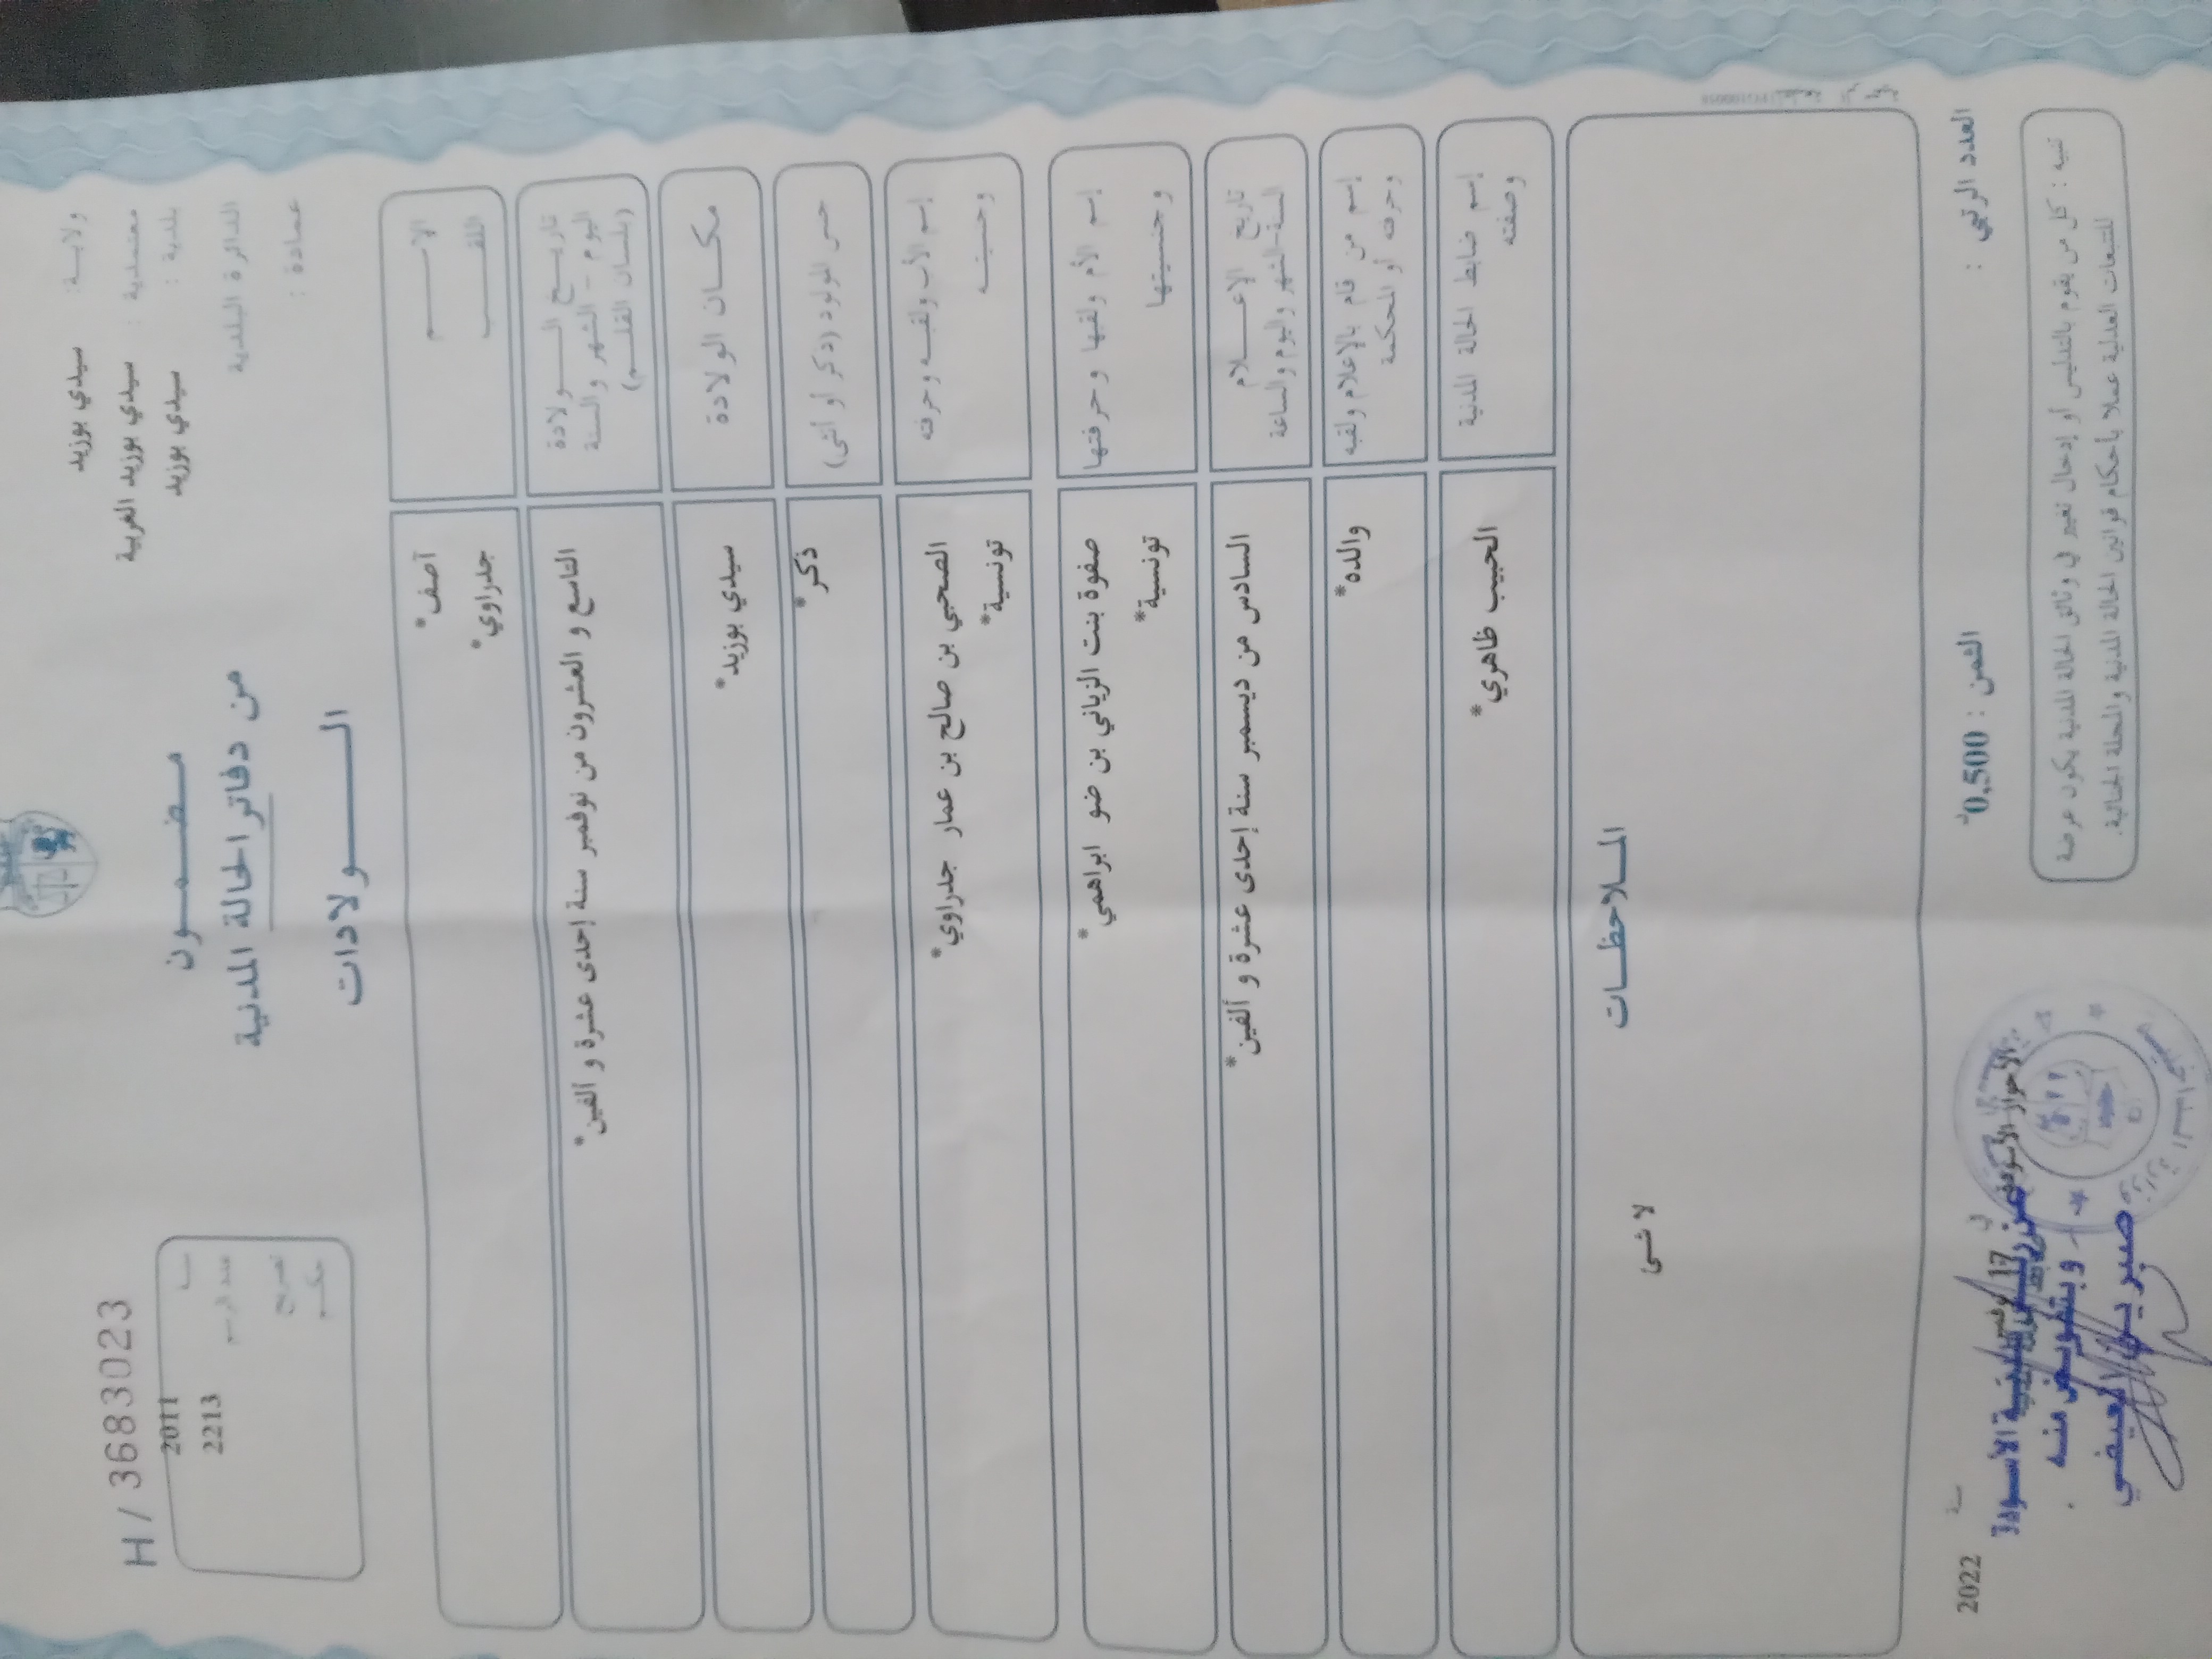 ولايــة: سيدي بوزيد
معتمدية : سيدي بوزيد الغربية
بلدية : سيدي بوزيد
الدائرة البلدية
عمادة :
مـضـمـون
من دفاتر الحالة المدنية
الـــولادات
H / 3683023
سنة 2011
عدد الرسم 2213
تصريح
حكم
الاسم آصف*
اللقب جدراوي*
تاريخ الولادة
اليوم - الشهر والسنة
(بلسان القلم)
التاسع و العشرون من نوفمبر سنة إحدى عشرة و ألفين*
مكان الولادة سيدي بوزيد*
جنس المولود (ذكر أو أنثى) ذكر*
إسم الأب ولقبه وحرفته الصحبي بن صالح بن عمار جدراوي*
وجنسيته تونسية*
إسم الأم ولقبها وحرفتها صفوة بنت الزياني بن ضو ابراهمي*
وجنسيتها تونسية*
تاريخ الإعلام
السنة-الشهر واليوم والساعة
السادس من ديسمبر سنة إحدى عشرة و ألفين*
إسم من قام بالإعلام ولقبه
وحرفته أو المحكمة
والده*
إسم ضابط الحالة المدنية
وصفته
الحبيب ظاهري*
الملاحظات
لا شئ
العدد الرتبي :
الثمن : 0,500د
في 17
سنة 2022
وبتفويض منه
صبرين العيفي
تنبيه : كل من يقوم بالتدليس أو إدخال تغيير في وثائق الحالة المدنية يكون عرضة
للتتبعات العدلية عملا بأحكام قوانين الحالة المدنية والمجلة الجنائية.